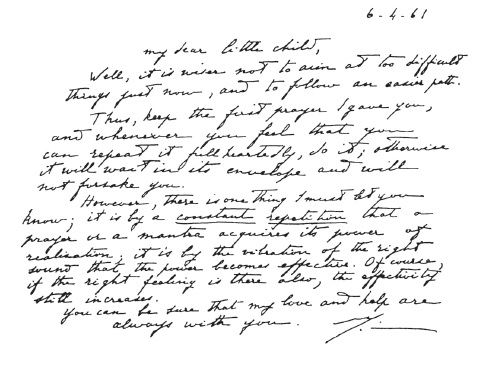 6-4-61
my dear little child,
Well, it is wiser not to aim at too difficult
things just now, and to follow an easier path.
Thus, keep the first prayer I gave you,
and whenever you feel that you
can repeat it fullheartedly, do it; otherwise
it will wait in its envelope and will
not forsake you.
However, there is one thing I must let you
know; it is by a constant repetition that a
prayer or a mantra acquires its power of
realisation; it is by the vibration of the right
sound that, the power becomes effective. Of course,
if the right feeling is there also, the effectivity
still increases.
You can be sure that my love and help are
always with you.